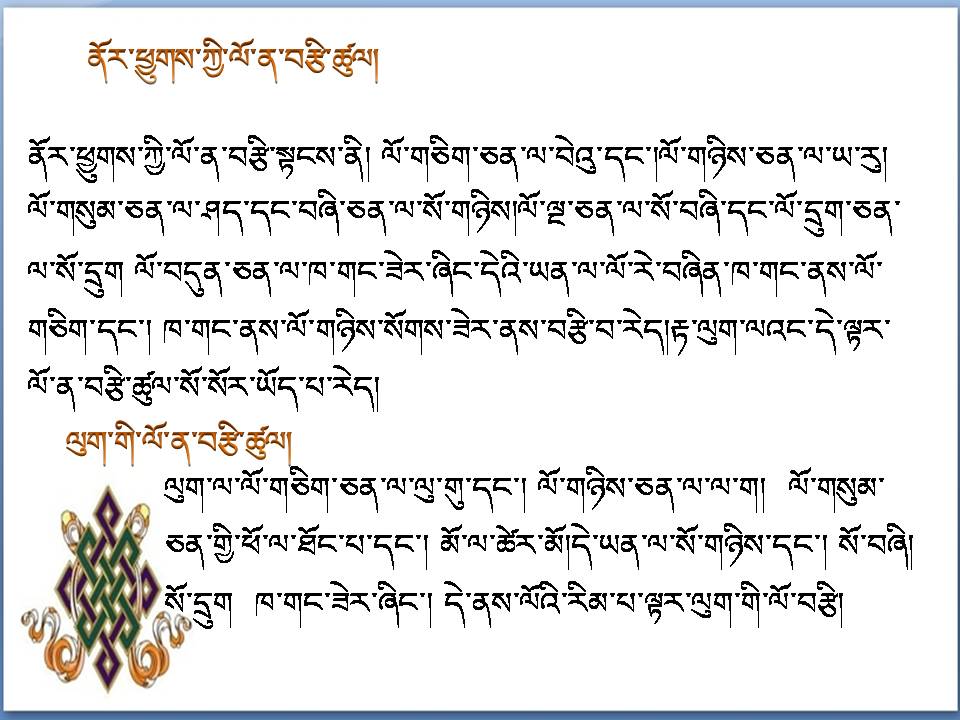 ནོར་ཕྱུགས་ཀྱི་ལོ་ན་བརྩི་ཚུལ།
ནོར་ཕྱུགས་ཀྱི་ལོ་ན་བརྩི་སྟངས་ནི། ལོ་གཅིག་ཅན་ལ་བེའུ་དང་།ལོ་གཉིས་ཅན་ལ་ཡ་རུ།
ལོ་གསུམ་ཅན་ལ་ཤད་དང་བཞི་ཅན་ལ་སོ་གཉིས།ལོ་ལྔ་ཅན་ལ་སོ་བཞི་དང་ལོ་དྲུག་ཅན་
ལ་སོ་དྲུག ལོ་བདུན་ཅན་ལ་ཁ་གང་ཟེར་ཞིང་དེའི་ཡན་ལ་ལོ་རེ་བཞིན་ཁ་གང་ནས་ལོ་
གཅིག་དང་། ཁ་གང་ནས་ལོ་གཉིས་སོགས་ཟེར་ནས་བརྩི་བ་རེད།རྟ་ལུག་ལའང་དེ་ལྟར་
ལོ་ན་བརྩི་ཚུལ་སོ་སོར་ཡོད་པ་རེད།
ལུག་གི་ལོ་ན་བརྩི་ཚུལ།
ལུག་ལ་ལོ་གཅིག་ཅན་ལ་ལུ་གུ་དང་། ལོ་གཉིས་ཅན་ལ་ལ་ག། ལོ་གསུམ་
ཅན་གྱི་ཕོ་ལ་ཐོང་པ་དང་། མོ་ལ་ཚེར་མོ།དེ་ཡན་ལ་སོ་གཉིས་དང་། སོ་བཞི།
སོ་དྲུག ཁ་གང་ཟེར་ཞིང་། དེ་ནས་ལོའི་རིམ་པ་ལྟར་ལུག་གི་ལོ་བརྩི།